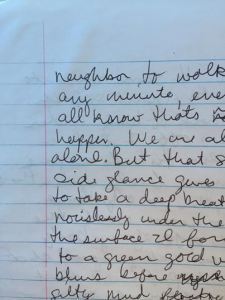 neighbor, to walk
any minute, even
all know that's
happen. We are al
alone. But that s
side glance gives
to take a deep breat
noislessly under the
the surface I for
to a green gold w
blurs before
salty mud